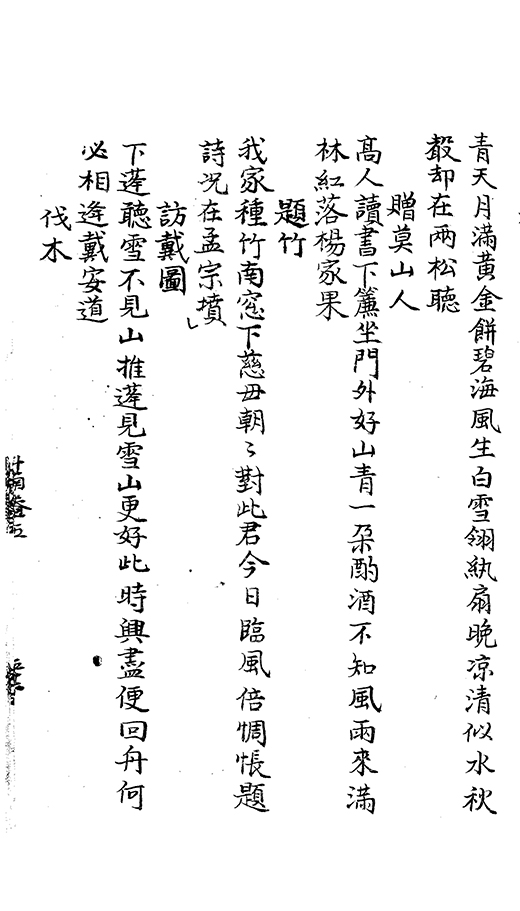 青天月滿黃金餅碧海風生白雪翎紈扇晚凉清似水秋
聲却在兩松聽
贈莫山人
髙人讀書下簾坐門外好山青一朶酌酒不知風雨來滿
林紅落楊家果
題竹
我家種竹南窓下慈毋朝〻對此君今日臨風倍惆悵題
詩况在孟宗墳
訪戴圖
下蓬聽雪不見山推蓬見雪山更好此時興盡便回舟何
必相逄戴安道
伐木